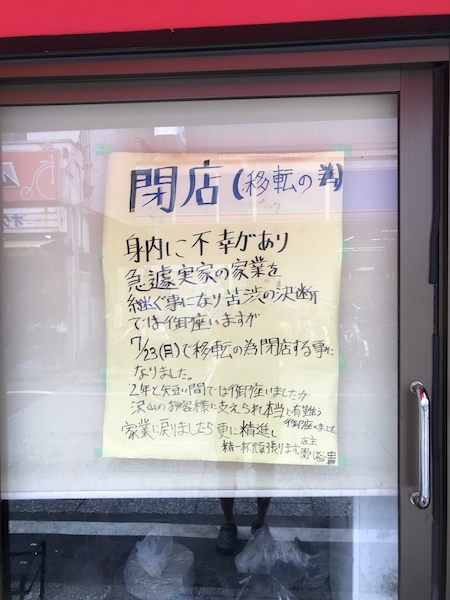 閉店(移転の為)
身内に不幸があり
急遽実家の家業を
継ぐ事になり苦渋の決断
では御座いますが
7/23(月)で移転の為閉店する事に
なりました。
2年と短い間では御座いましたが
沢山のお客様に支えられ本当に有難う
御座いました
家業に戻りましたら更に精進し
精一杯頑張ります。
店主